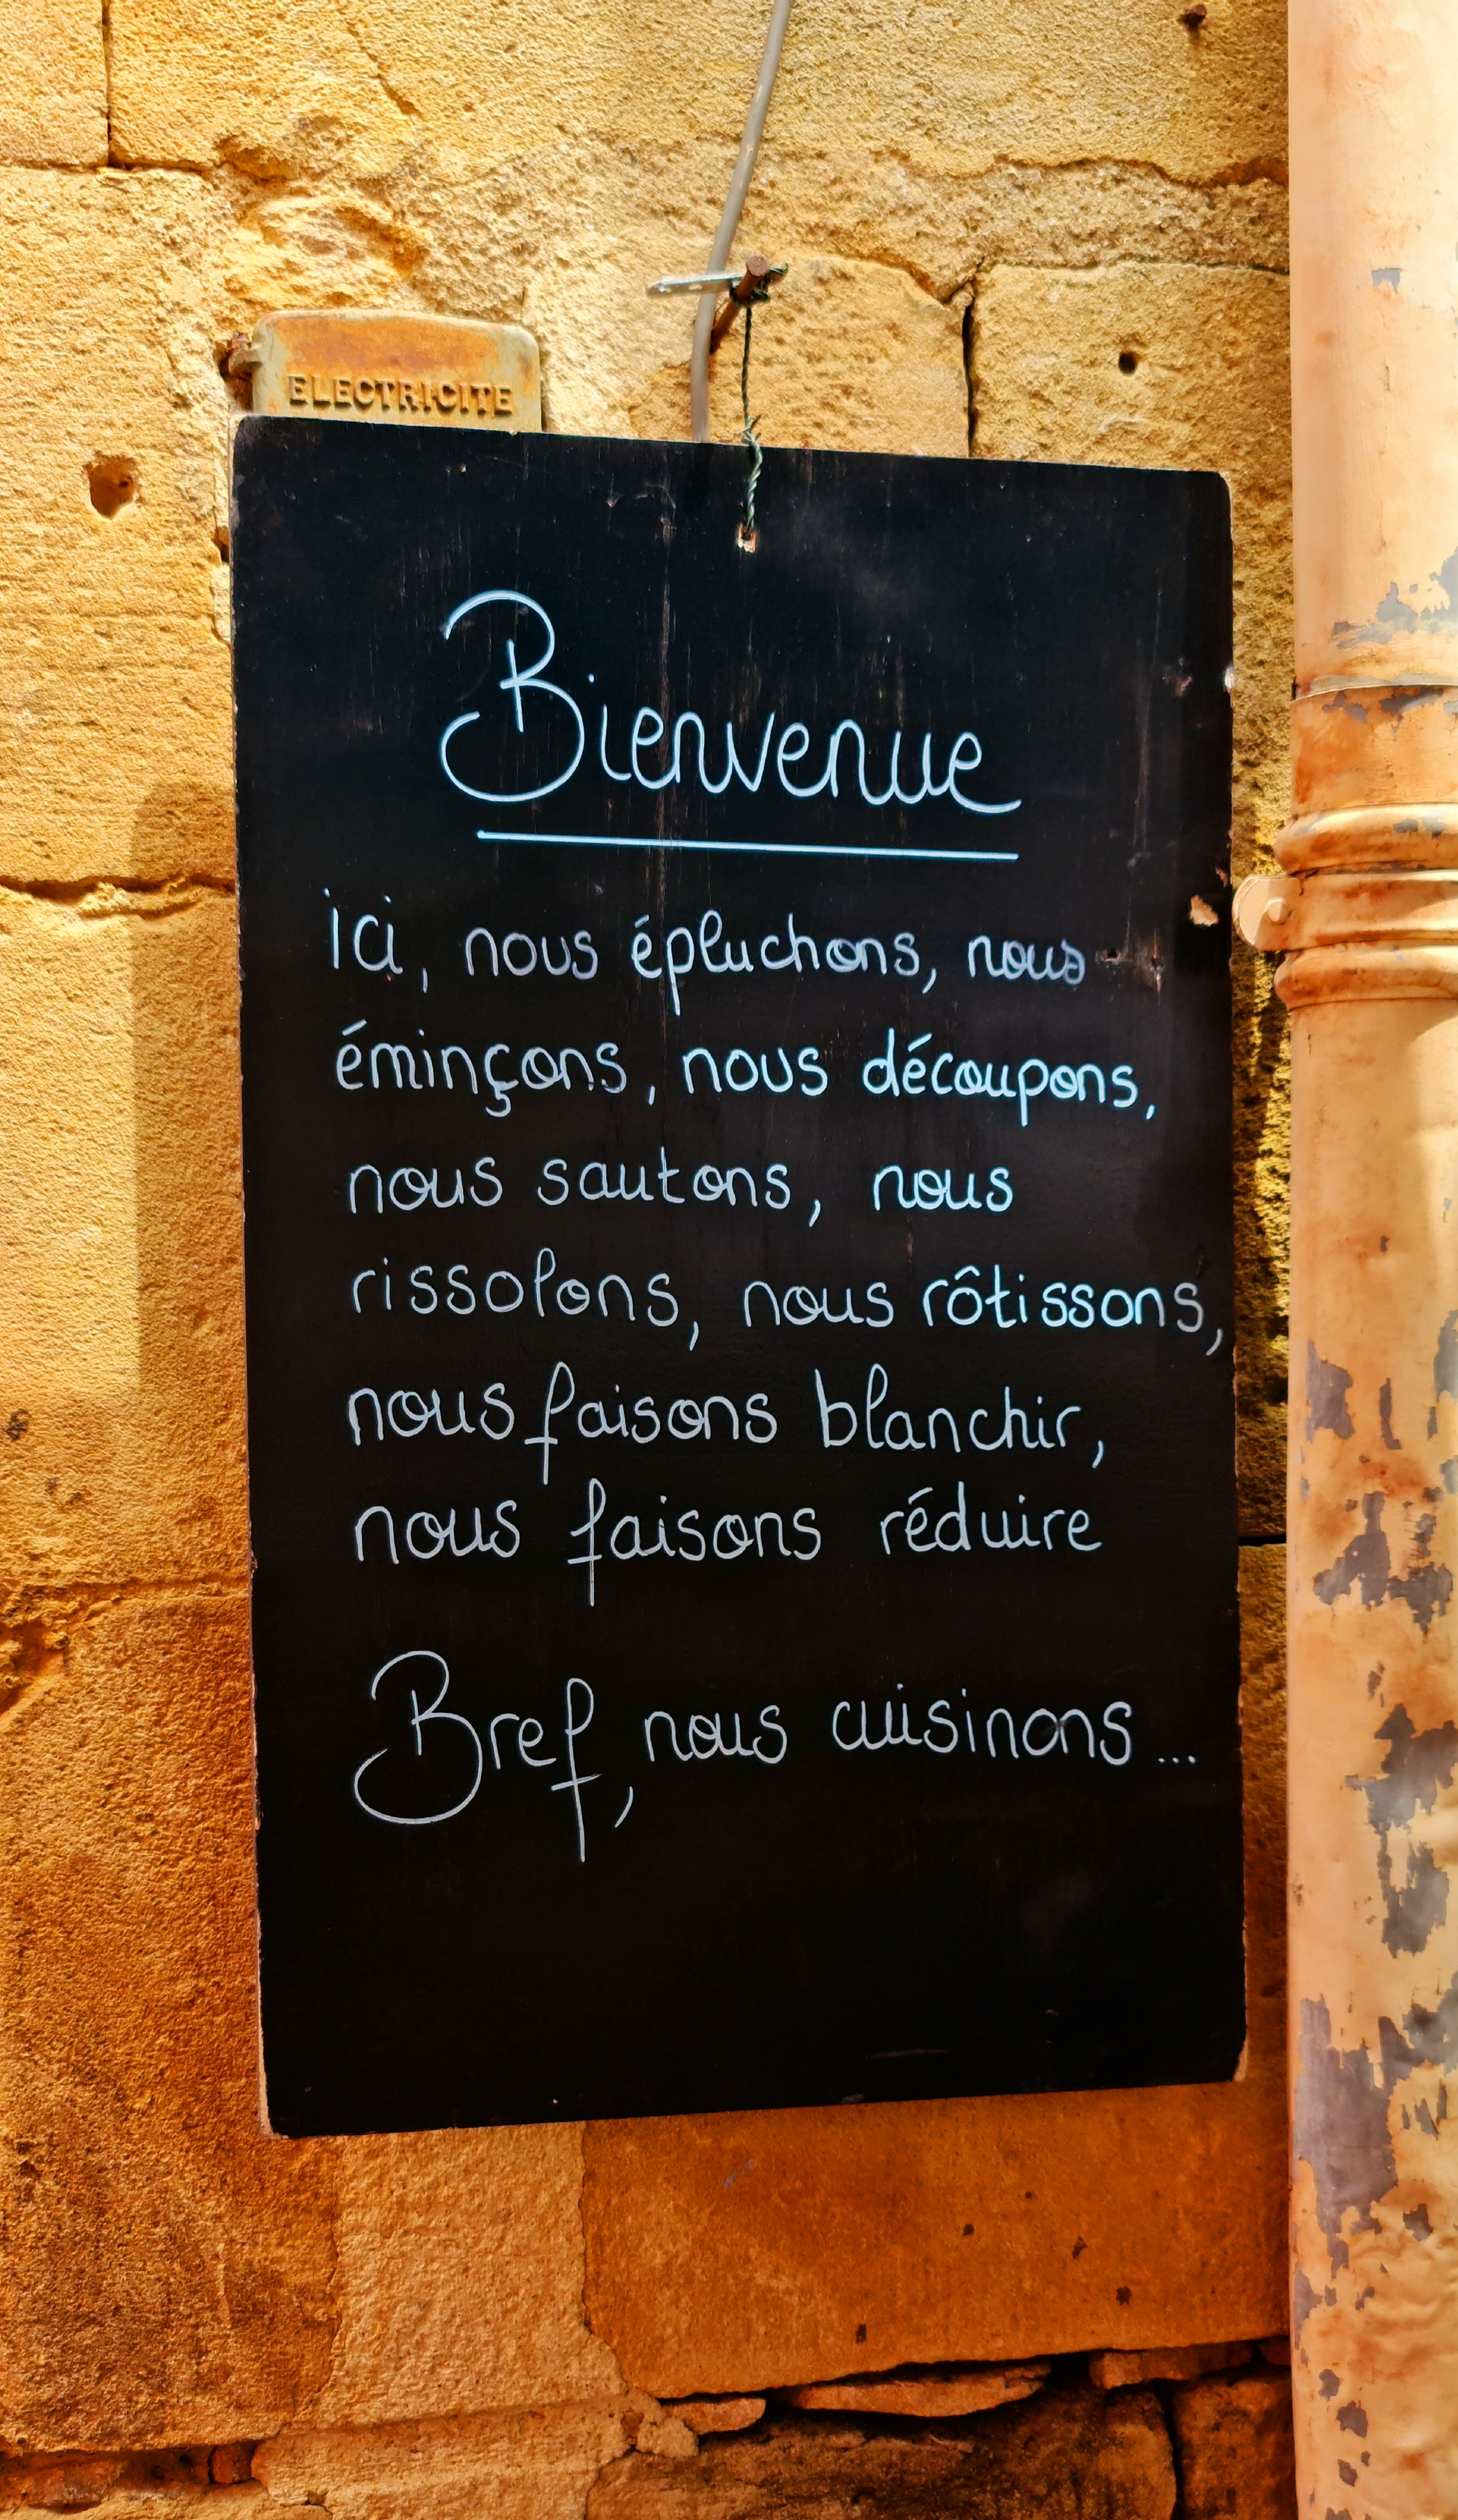 ELECTRICITE
Bienvenue
ici, nous épluchons, nous
éminçons, nous découpons,
nous sautons, nous
rissolons, nous rôtissons,
nous faisons blanchir,
nous faisons réduire
Bref, nous cuisinons...